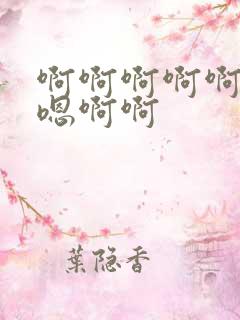 啊啊啊啊啊
嗯啊啊
葉隐香